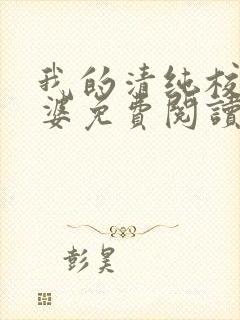 我的清纯校
婆免費閱讀
彭昊